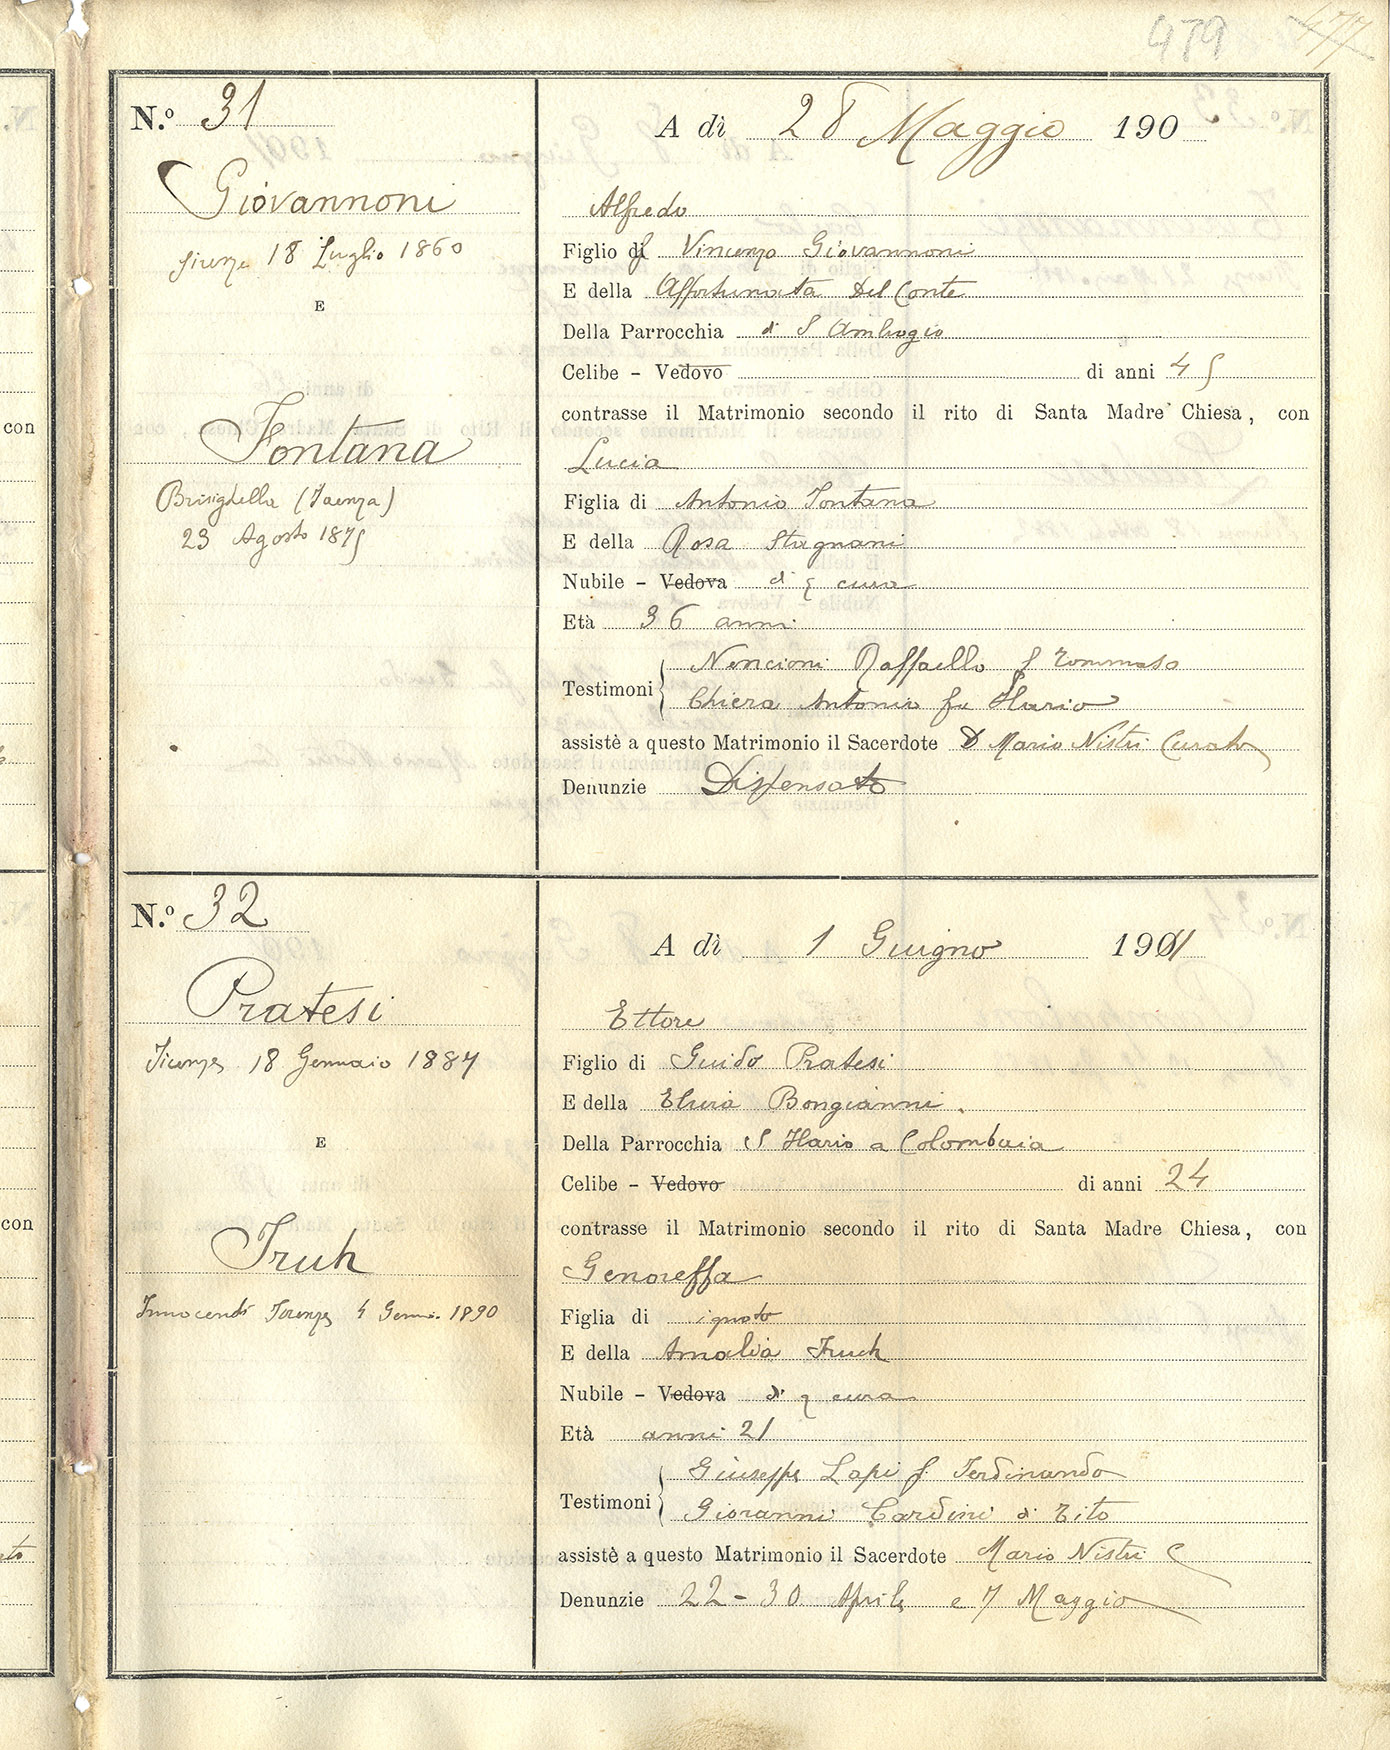 479
477
N.º 31
Giovannoni
Firenze 18 Luglio 1860
E
Fontana
Brisighella (Faenza)
23 Agosto 1875
A dì 28 Maggio 190
Alfredo
Figlio di Vincenzo Giovannoni
E della Affortunata Del Conte
Della Parrocchia di S Ambrogio
Celibe - Vedovo di anni 45
contrasse il Matrimonio secondo il rito di Santa Madre Chiesa, con
Lucia
Figlia di Antonio Fontana
E della Rosa Stagnani
Nubile - Vedova di q cura
Età 36 anni
Testimoni
Nencioni Raffaello f Tommaso
Chiera Antonio fu Ilario
assistè a questo Matrimonio il Sacerdote D Mario Nistri Curato
Denunzie Dispensato
N.º 32
Pratesi
Firenze 18 Gennaio 1887
E
Truh
Innocenti Firenze 4 Genn. 1890
A dì 1 Guigno 1911
Ettore
Figlio di Guido Pratesi
E della Elvira Bongianni
Della Parrocchia S Ilario a Colombaia
Celibe - Vedovo di anni 24
contrasse il Matrimonio secondo il rito di Santa Madre Chiesa, con
Genoveffa
Figlia di ignoto
E della Amalia Truch
Nubile - Vedova di q cura
Età anni 21
Testimoni
Giuseppe Lapi f. Ferdinando
Giovanni Cardini di Tito
assistè a questo Matrimonio il Sacerdote Mario Nistri C
Denunzie 22 - 30 Aprile e 7 Maggio
con
con